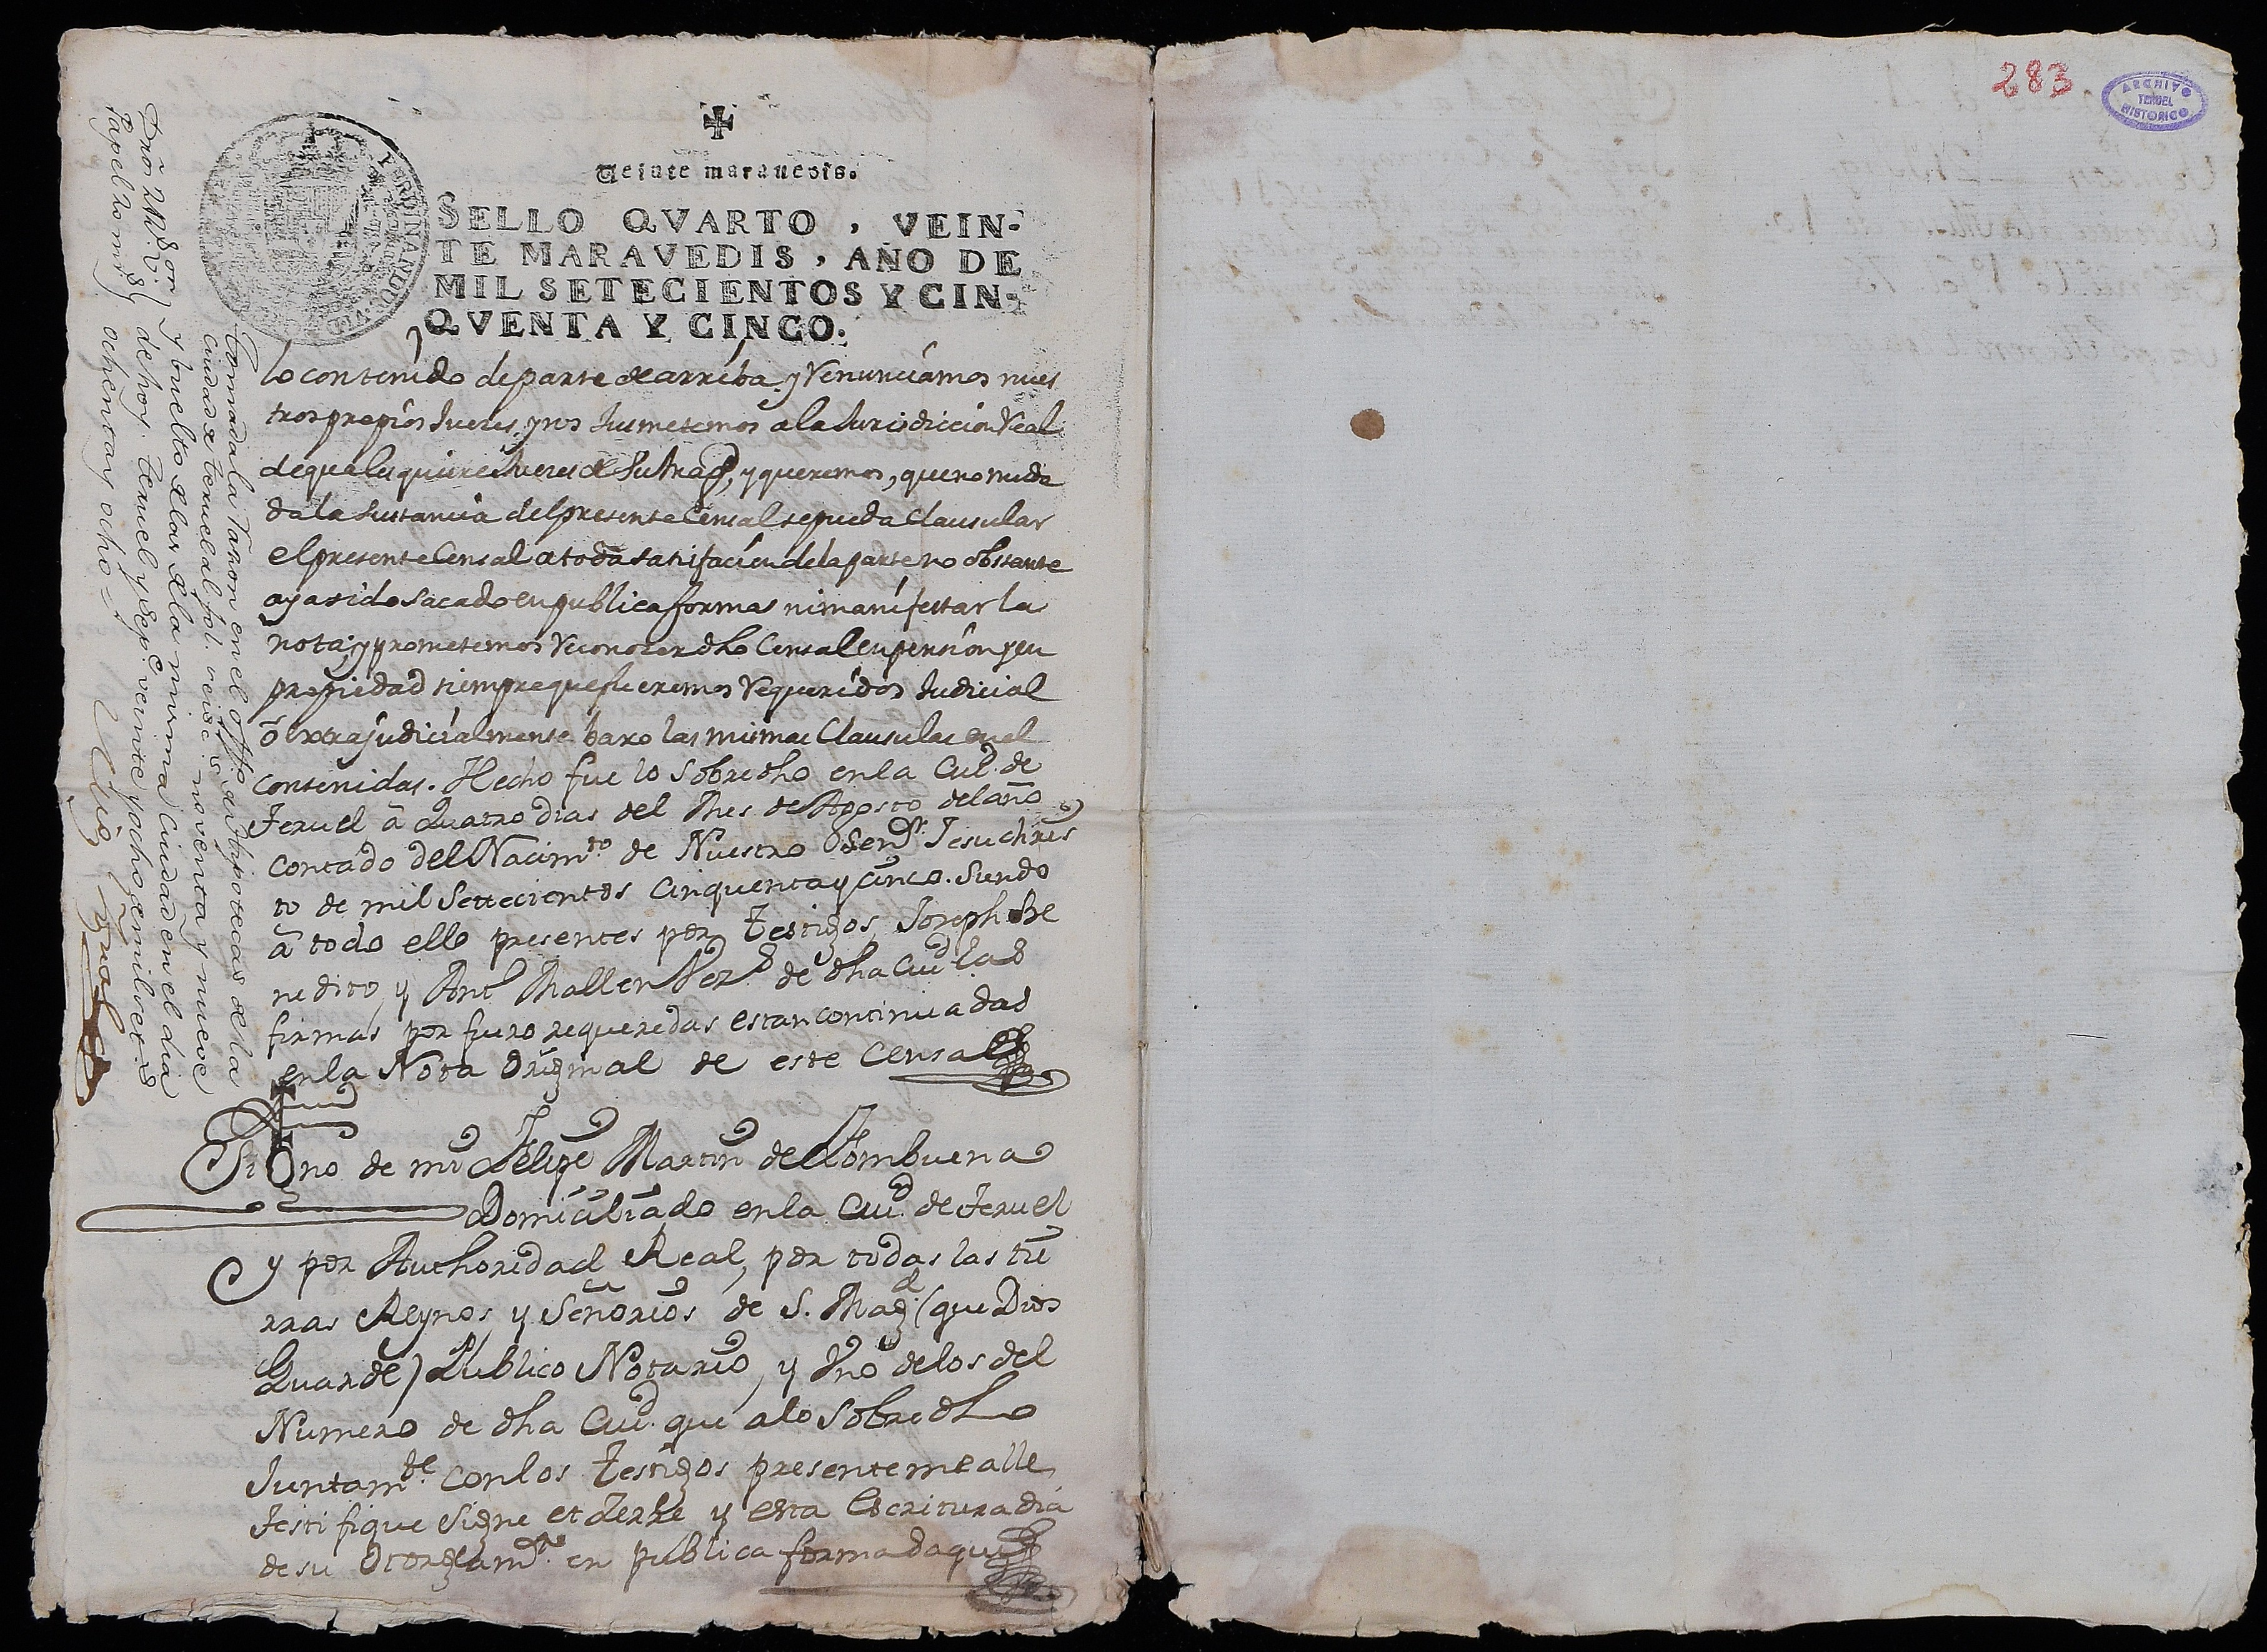 Veinte maravedis.
SELLO QVARTO, VEIN-
TE MARAVEDIS, AÑO DE
MIL SETECIENTOS Y CIN-
QVENTA Y CINCO.
lo contenido de parte de arriba, y Renunciamos nues
tros propios Jueces, y nos Jusmetemos a la Jurisdicion Real
de qualesquiere Jueces de Su Magd, y queremos, que no muda
da la Sustancia del presente Censal se pueda Clausular
el presente Censal a toda satisfacion de la parte no obstante
aya sido sacado en publica forma, ni manifestar la
nota; y prometemos Reconocer dho Censal en pension y en
propiedad siempre que fueremos Requeridos Judicial
ō extrajudicialmente baxo las mismas Clausulas en el
contenidas. Hecho fue lo Sobredho en la Ciud. de
Teruel â Quatro dias del Mes de Agosto del año
contado del Nacimto. de Nuestro Señr. Jesuchris
to de mil Settecientos Cinquenta y cinco. Siendo
â todo ello presentes por Testigos Joseph Be
nedito, y Antº Mallen Vezs. de dha Ciud. las
firmas por fuero requeredas estan continuadas
en la Nota Original de este Censal
Signo de mi Felipe Martin de Ombuena
Domiciliado en la Ciud. de Teruel
y por Authoridad Real, por todas las tie
rras Reynos, y Señorios de S. Magd. (que Dios
Guarde) Publico Notario, y Vno de los del
Numero de dha Ciud. que a lo Sobredho
Juntamte. con los Testigos presente me alle,
Testifique Signe et Zerre y esta Escritura dia
de su Otorgamto. en publica forma daque
Tomada la razon en el offo. de Hypotecas de la
ciudad de Teruel al fol. seisc.s noventa y nueve
y buelto de los de la misma Ciudad en el dia
de hoy. Teruel y Sepe. veinte y ocho de mil set.s
ochenta y ocho =
Dros 2 Rs. Von
Papel 20 ms
283
ARCHIVO
HISTORICO
TERUEL